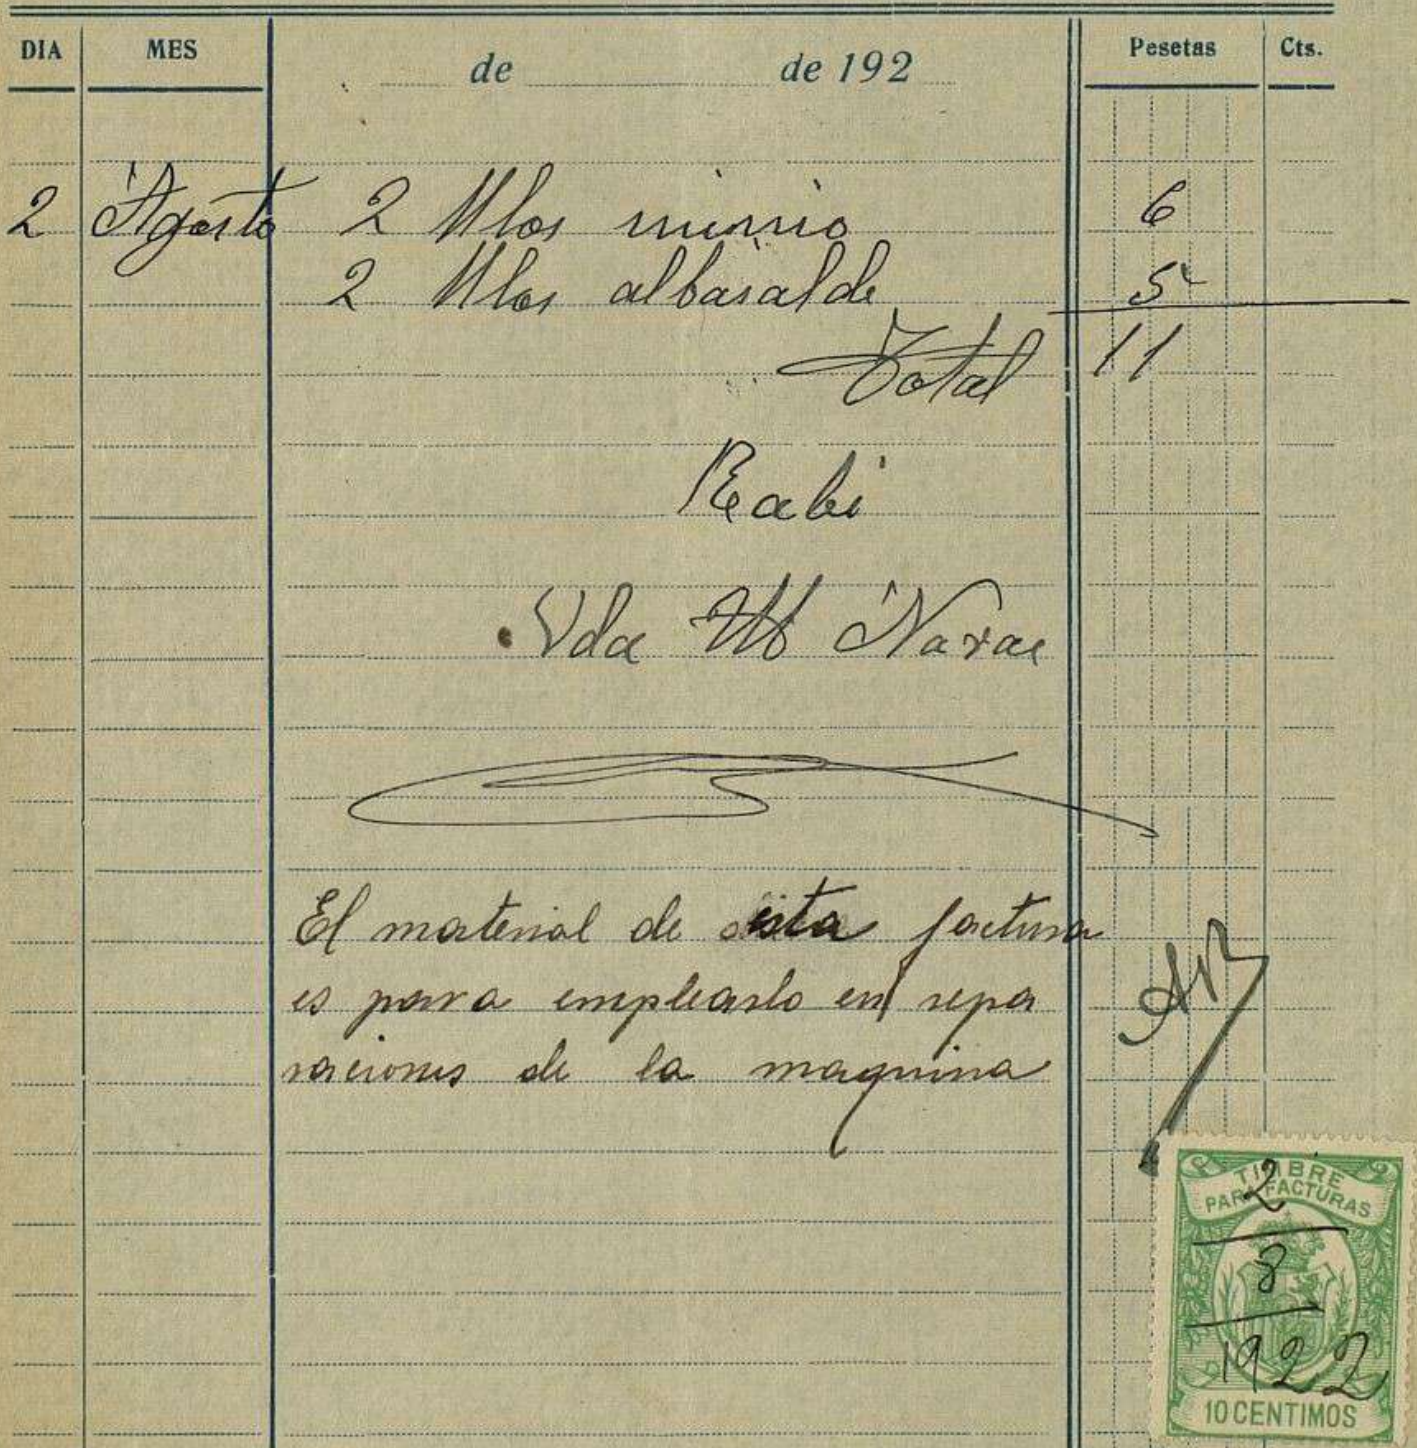 DIA MES de de 192 Pesetas Cts.
2 Agosto 2 Klos minio 6
2 Klos albasalde 5
Total 11
Recbi
Vda M Navas
El material de esta factura
es para emplearlo en repa
raciones de la maquina
TIMBRE
PARA FACTURAS
2
8
1922
10 CENTIMOS